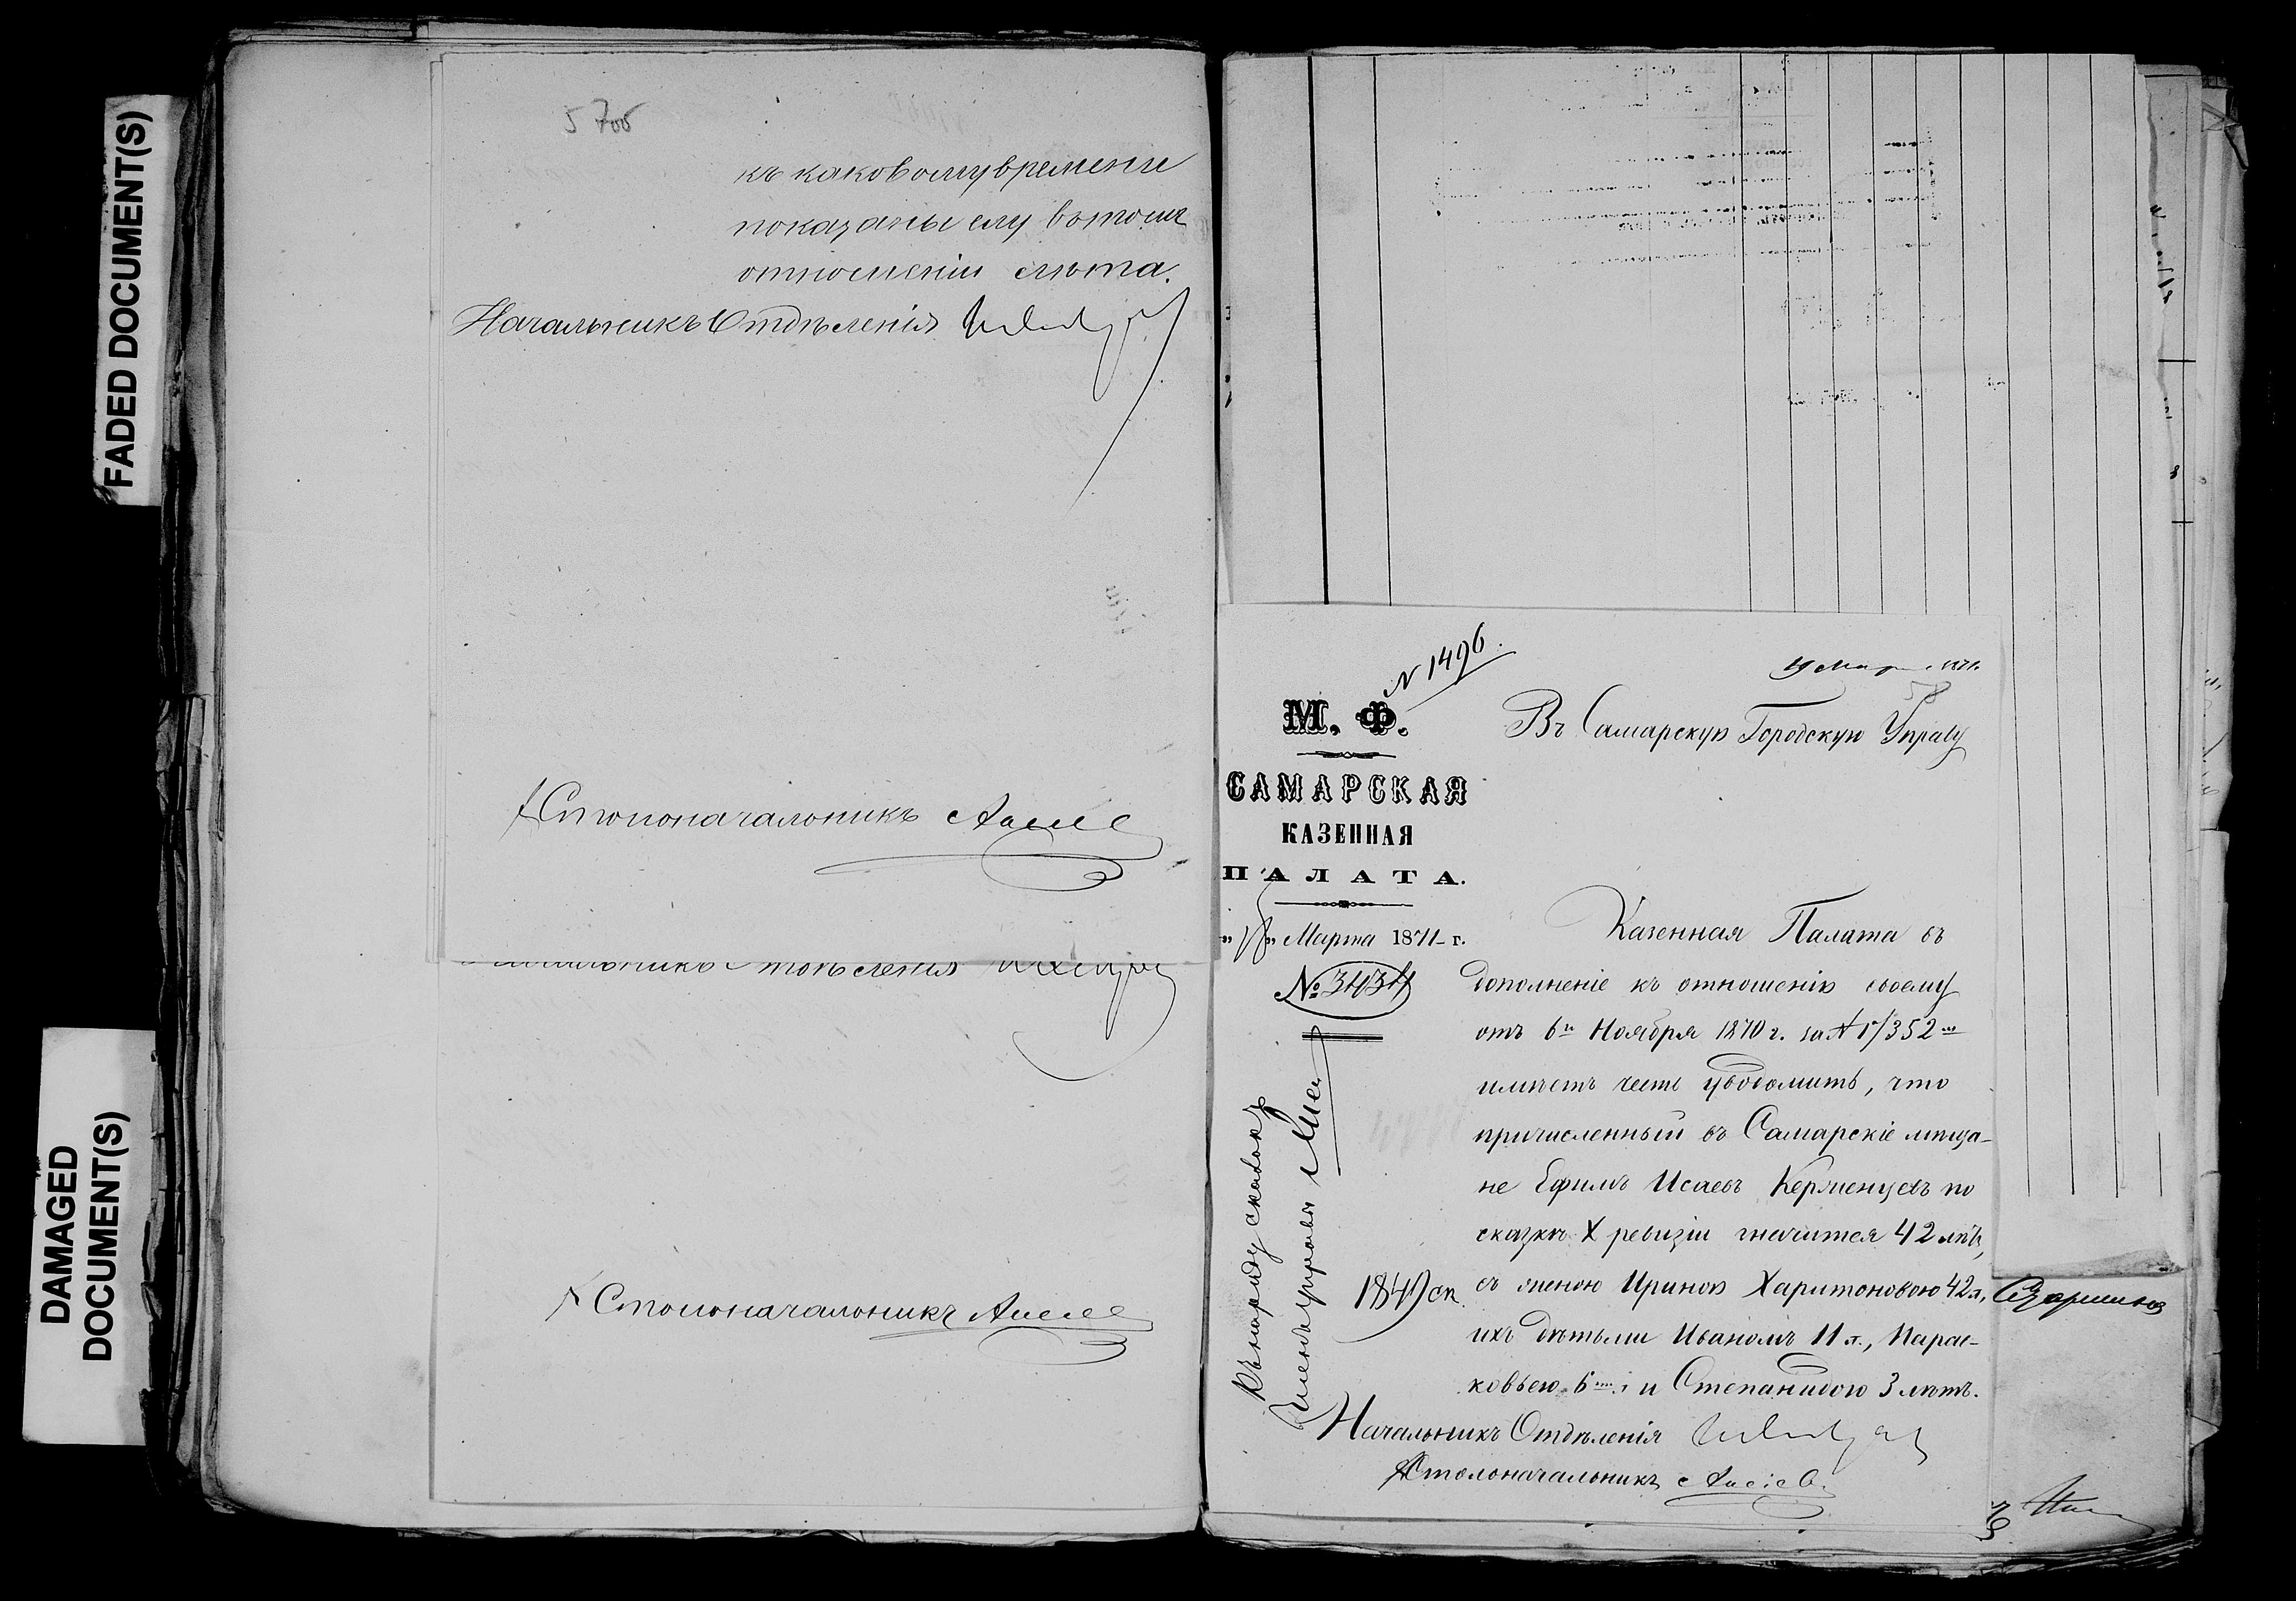 FADED DOCUMENT(S)
DAMAGED
DOCUMENT(S)
къ каковому времени
показаны ему въ томъ
отношеніи лѣта.
Начальникъ Отдѣленія
Столоначальникъ
Начальникъ Отдѣленія
Столоначальникъ
N 1496.
19 Мар 1871.
58
М. Ф.
САМАРСКАЯ
КАЗЕННАЯ
ПАЛАТА.
Марта 1871 г.
№ 3434
Въ Самарскую Городскую Управу
Казенная Палата въ
дополненіе къ отношенію своему
отъ 6го Ноября 1870 г. за № 17352мъ
имѣетъ честь увѣдомить, что
причисленный въ Самарскіе мѣща-
не Ефимъ Исаевъ по
сказкѣ X ревизіи значится 42 лѣтъ,
съ женою Ириною Харитоновою 42 л,
ихъ дѣтьми Иваномъ 11 л., Парас-
ковьею 6ти и Степанидою 3 лѣтъ.
Начальникъ Отдѣленія
Столоначальникъ
Къ наряду сказокъ
Членъ управы